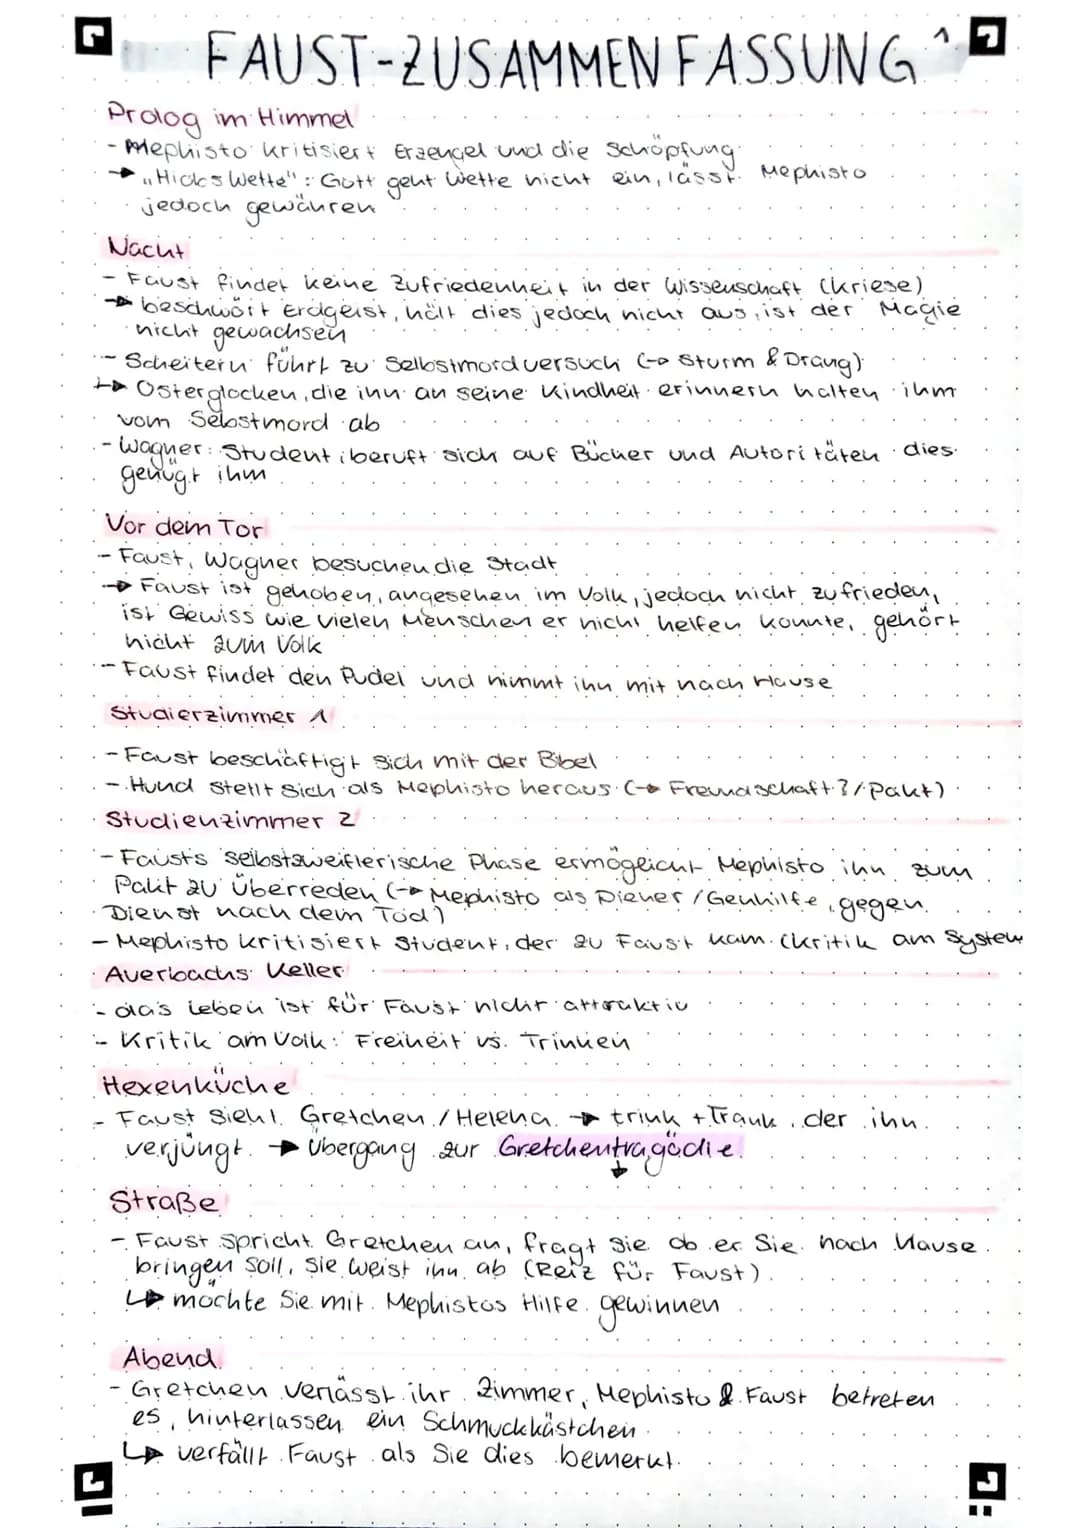 FAUST-ZUSAMMENFASSUNG 1
Prolog im Himmel
- Mephisto kritisiert Erzengel und die Schöpfung
→ „Hiobs Wette": Gott geht Wette nicht ein, lässt Mephisto
jedoch gewähren
Nacht
- Faust findet keine Zufriedenheit in der Wissenschaft (kriese)
→ beschwört Erdgeist, hält dies jedoch nicht aus, ist der Magie
nicht gewachsen
- Scheitern führt zu Selbstmordversuch (→ Sturm & Drang)
↳ Osterglocken, die ihn an seine Kindheit erinnern halten ihm
vom Selbstmord ab
- Wagner: Student; beruft sich auf Bücher und Autoritäten dies
genügt ihm
Vor dem Tor
- Faust, Wagner besuchen die Stadt
→ Faust ist gehoben, angesehen im Volk, jedoch nicht zufrieden,
ist Gewiss wie vielen Menschen er nicht helfen konnte, gehört
nicht zum Volk
- Faust findet den Pudel und nimmt ihn mit nach Hause
Studierzimmer 1
- Faust beschäftigt sich mit der Bibel
- Hund stellt sich als Mephisto heraus (→ Freundschaft?/Pakt)
Studienzimmer 2
- Fausts selbstzweiflerische Phase ermöglicht Mephisto ihn zum
Pakt zu überreden (→ Mephisto als Diener/Gehilfe, gegen
Dienst nach dem Tod)
- Mephisto kritisiert Student, der zu Faust kam. (kritik am System
Auerbachs Keller
- das Leben ist für Faust nicht attraktiv
- Kritik am Volk: Freiheit vs. Trinken
Hexenküche
- Faust sieht Gretchen/Helena → trink + Trank, der ihn
verjüngt. → Übergang zur Gretchentragödie.
Straße
- Faust spricht Gretchen an, fragt sie ob er Sie nach Hause
bringen soll, sie weist ihn ab (Reiz für Faust)
↳ möchte Sie mit Mephistos Hilfe gewinnen
Abend
- Gretchen verlässt ihr Zimmer, Mephisto & Faust betreten
es, hinterlassen ein Schmuckkästchen
↳ verfällt Faust als Sie dies bemerkt.